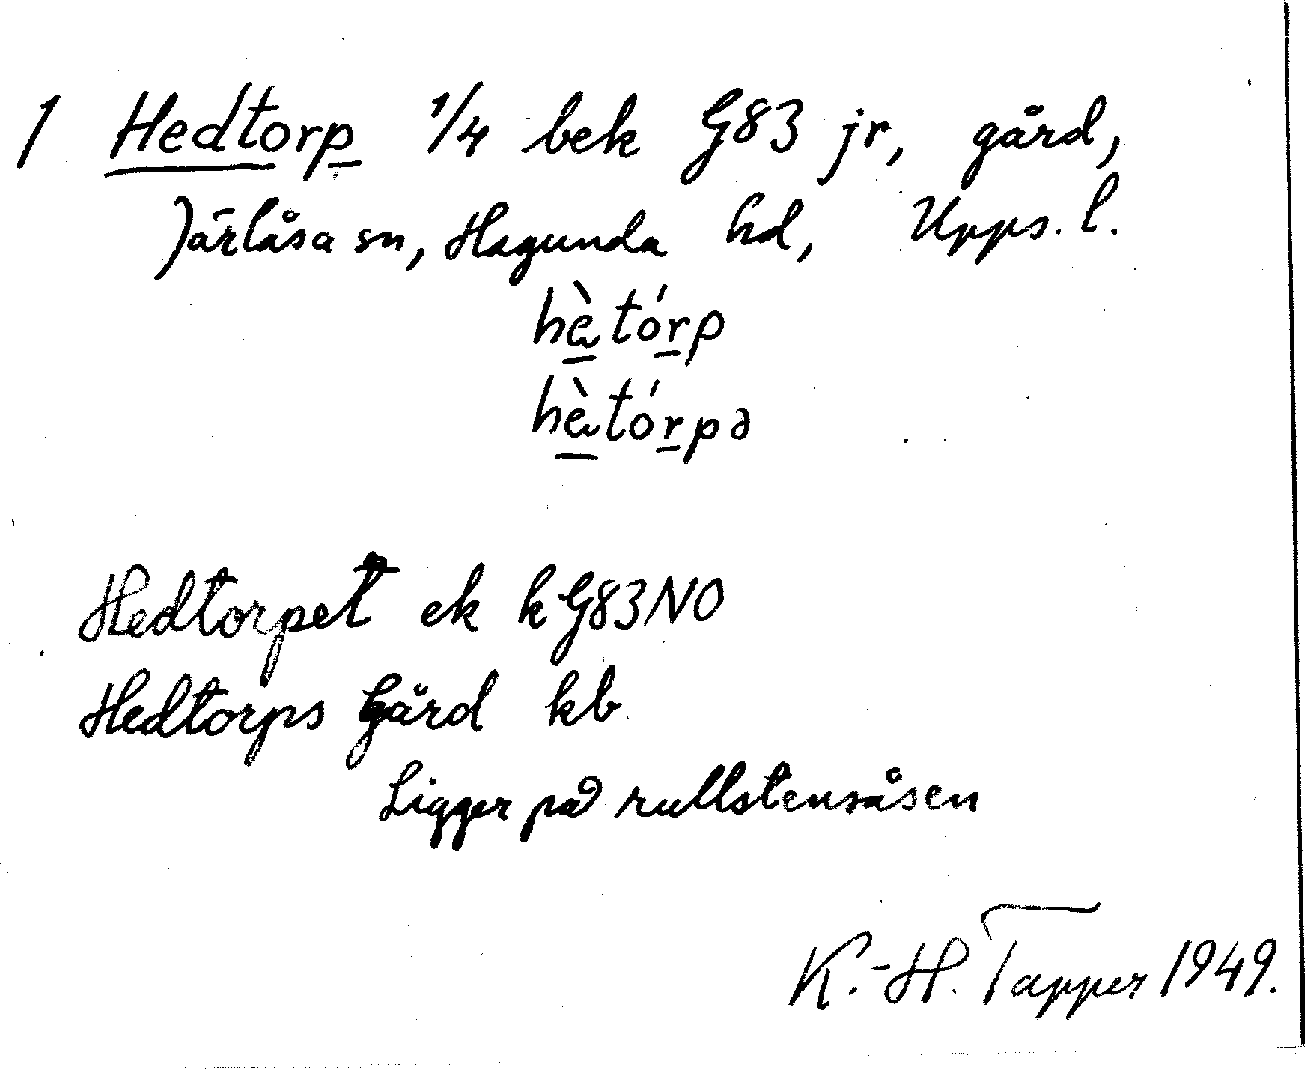 1 Hedtorp 1/4 bek G83 jr, gård,
Järlåsa sn, Hagunda hd, Upps. l.
hètórp
hètórpə
Hedtorpet ek k G83NO
Hedtorps Gård kb
Ligger på rullstensåsen
K.-H. Tapper 1949.